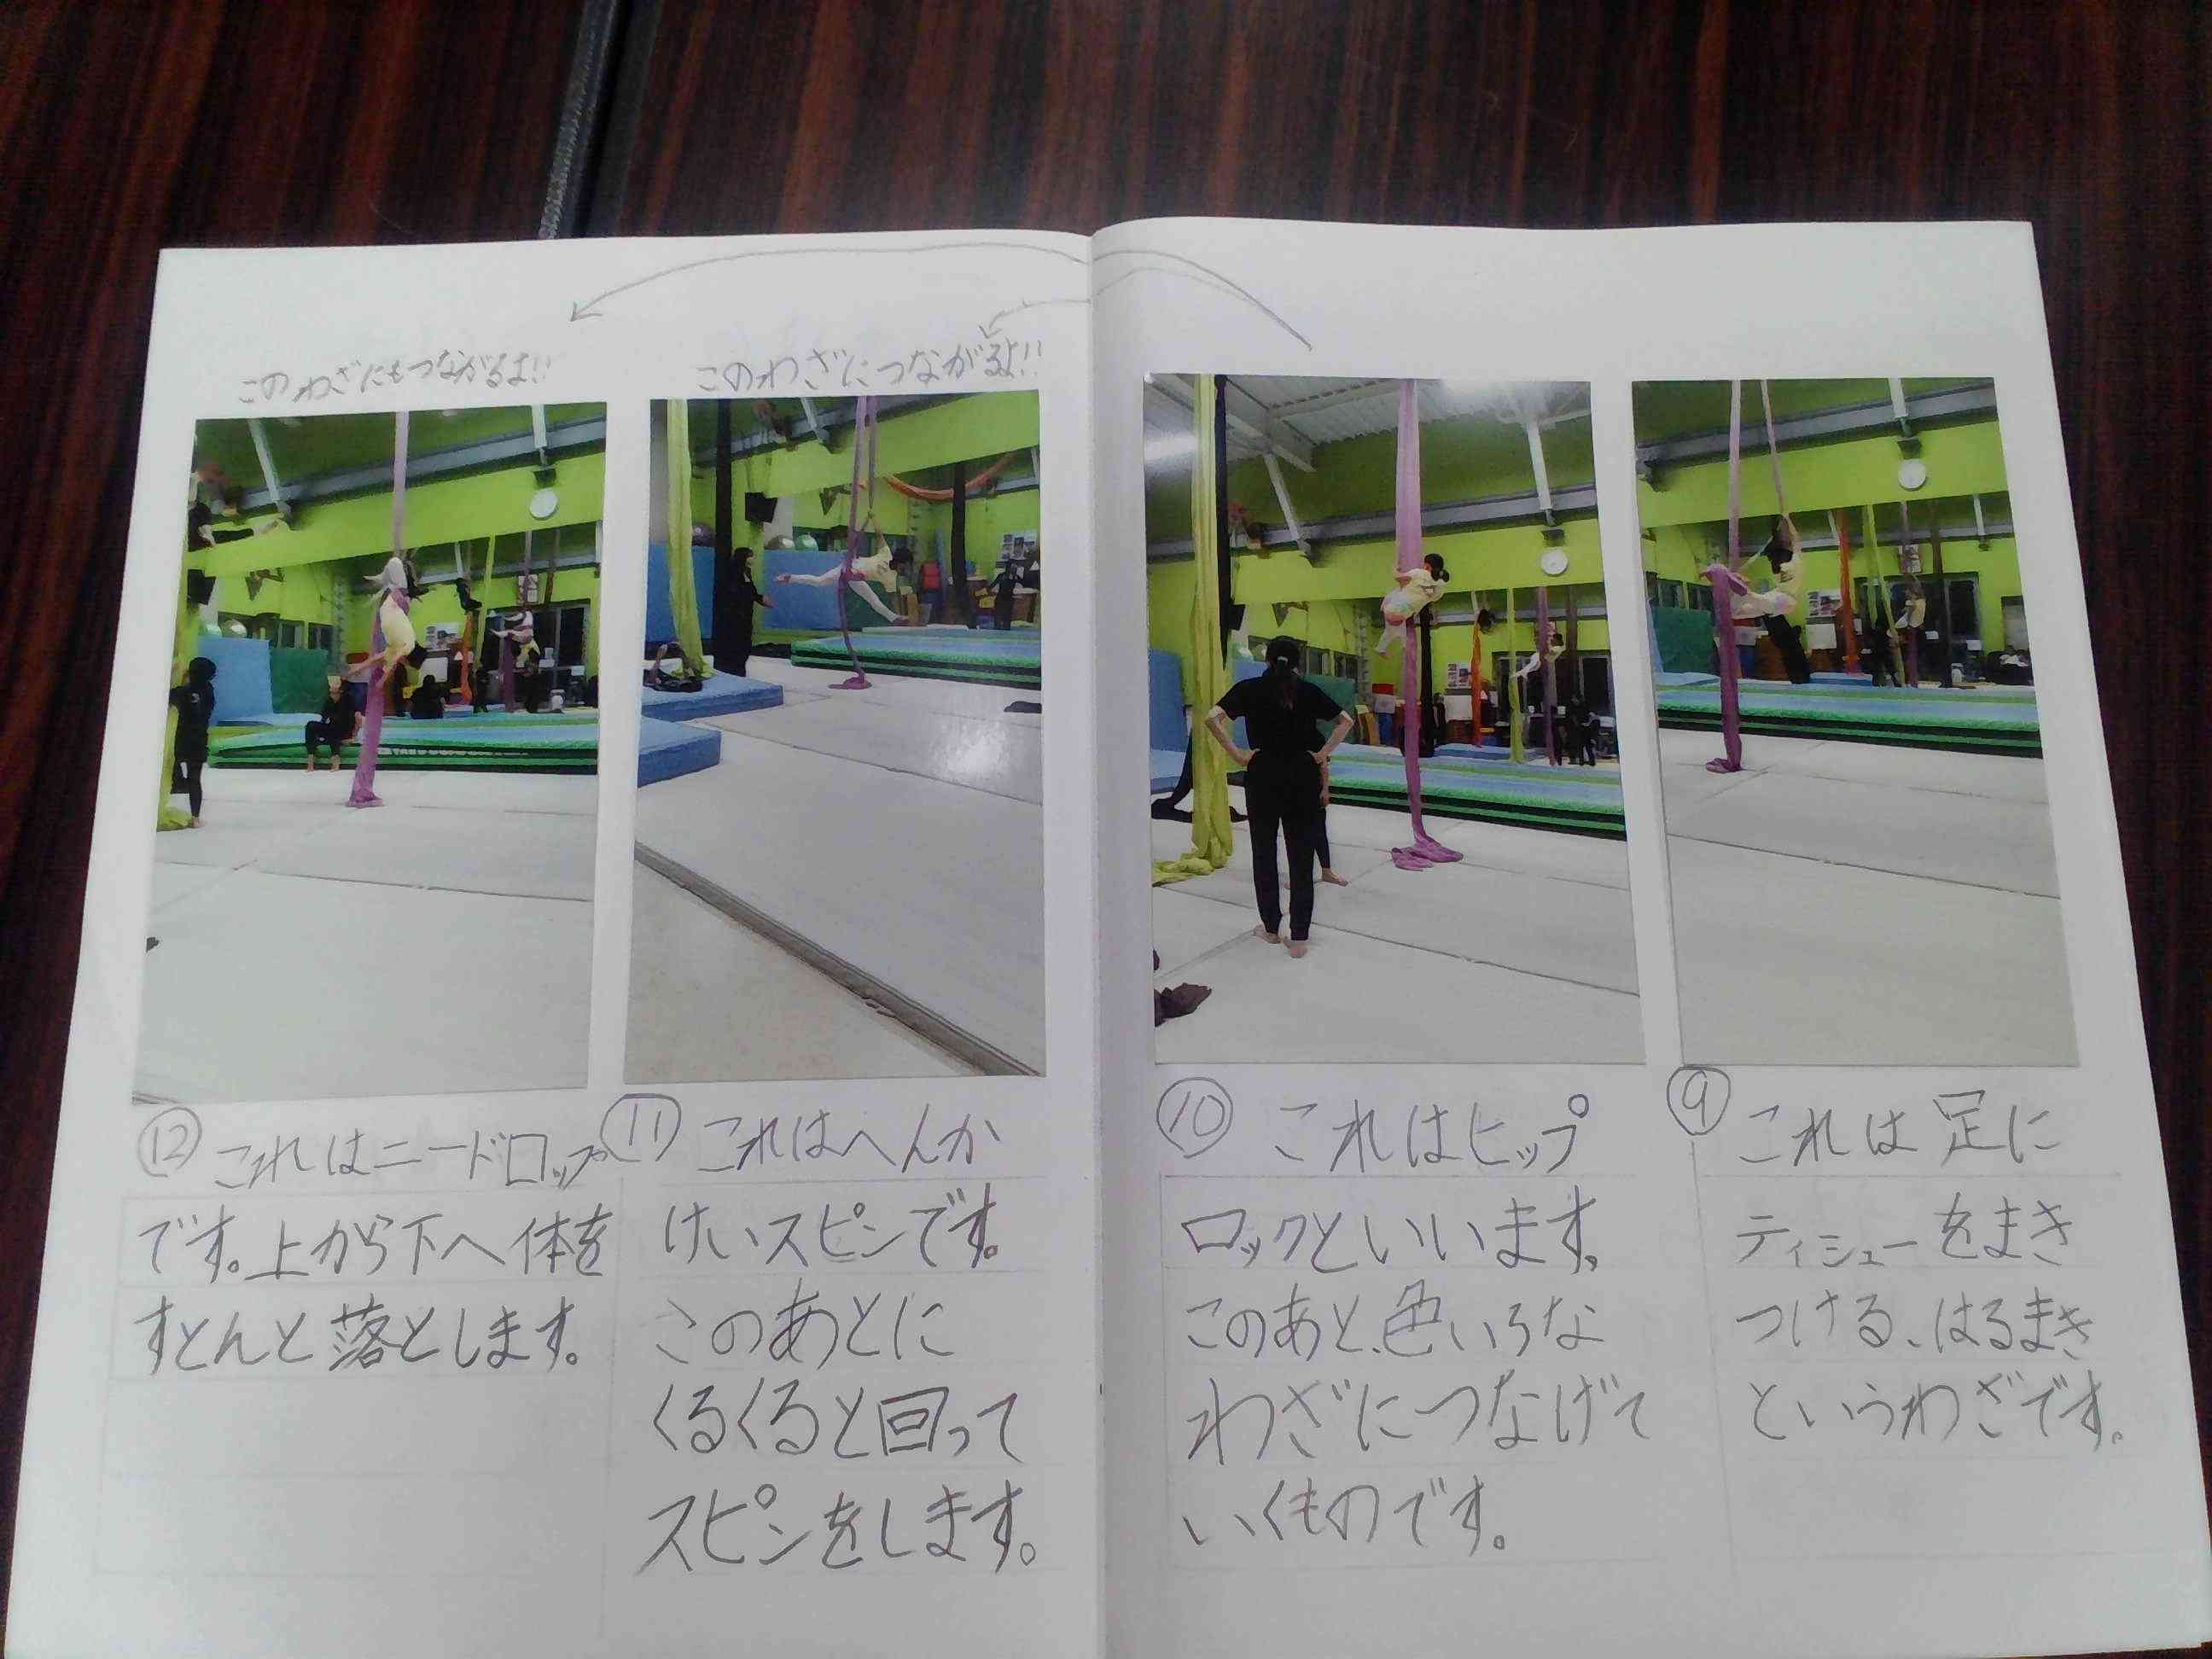 ⑨これは足に
ティシューをまき
つける、はるまき
というわざです。
⑩これはヒップ
ロックといいます。
このあと、色いろな
わざにつなげて
いくものです。
このわざにつながるよ!!
⑪これはへんか
けいスピンです。
このあとに
くるくると回って
スピンをします。
このわざにもつながるよ!!
⑫これはニードロップ
です。上から下へ体を
すとんと落とします。